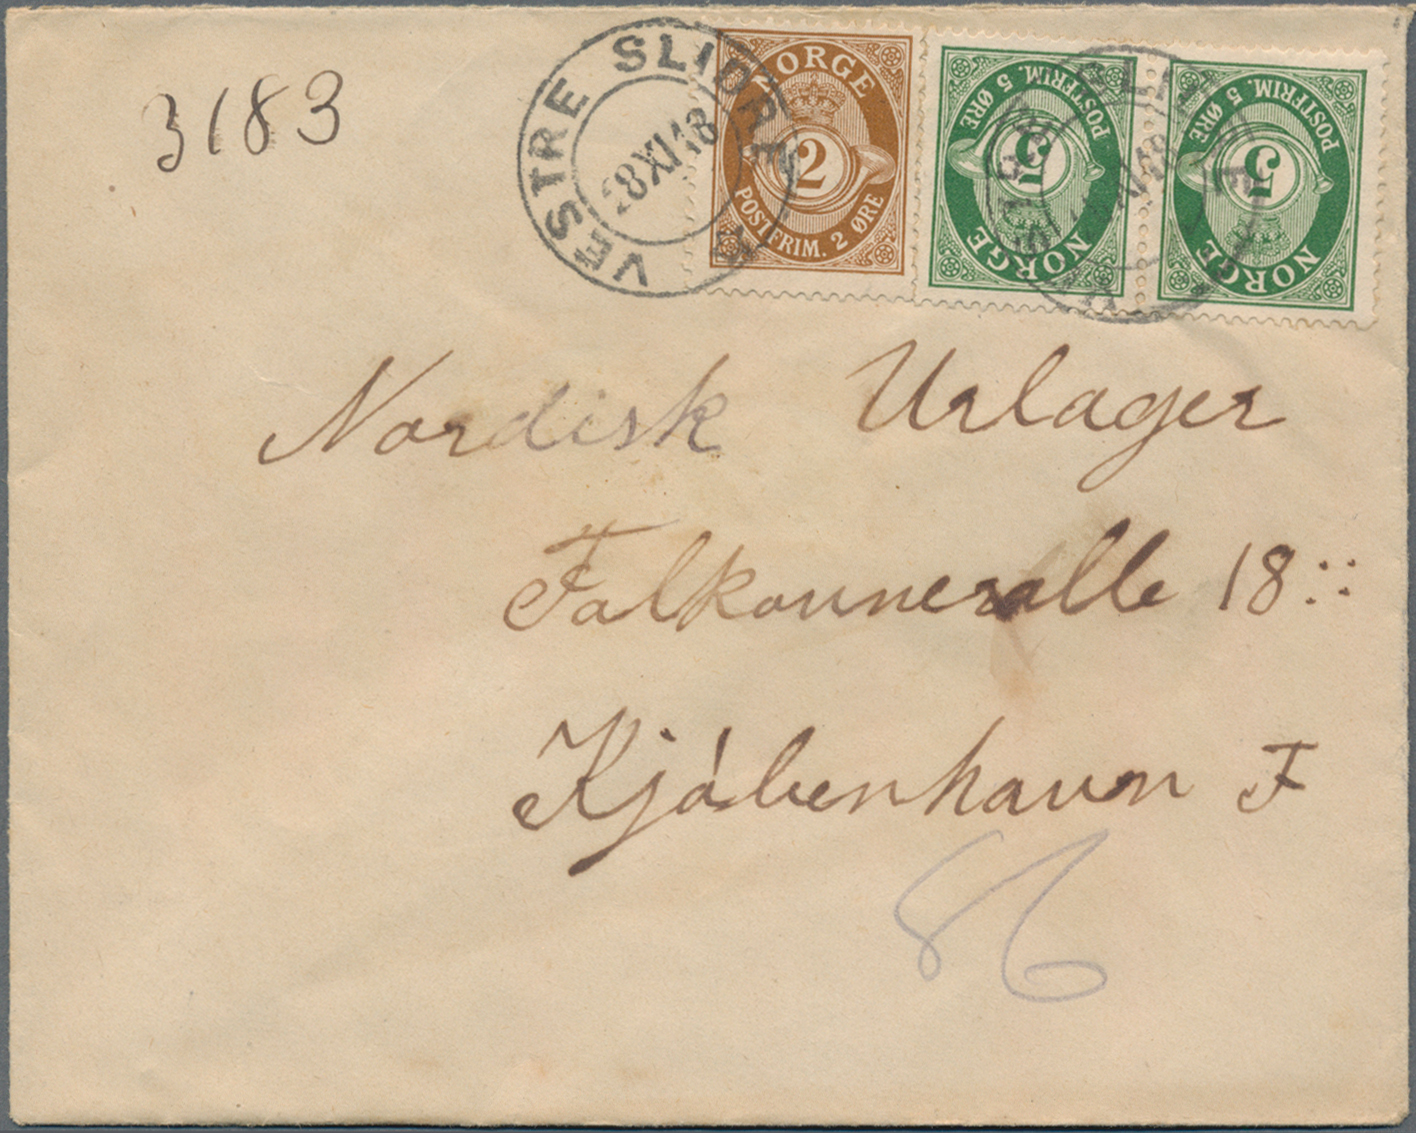 3183
VESTRE SLIDRE
28 XI 18
NORGE
2
POSTFRIM. 2 ØRE
NORGE
5
POSTFRIM. 5 ØRE
NORGE
5
POSTFRIM. 5 ØRE
Nordisk Urlager
Falkonneralle 18::
Kjóbenhavn F